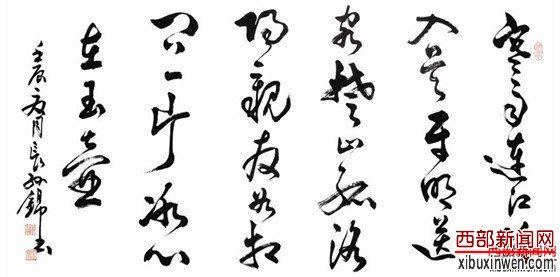 寒雨連江夜
入吳平明送
客楚山孤洛
陽親友如相
問一片冰心
在玉壺
壬辰夏月長孫錦書
西部新闻网
xibuxinwen.com